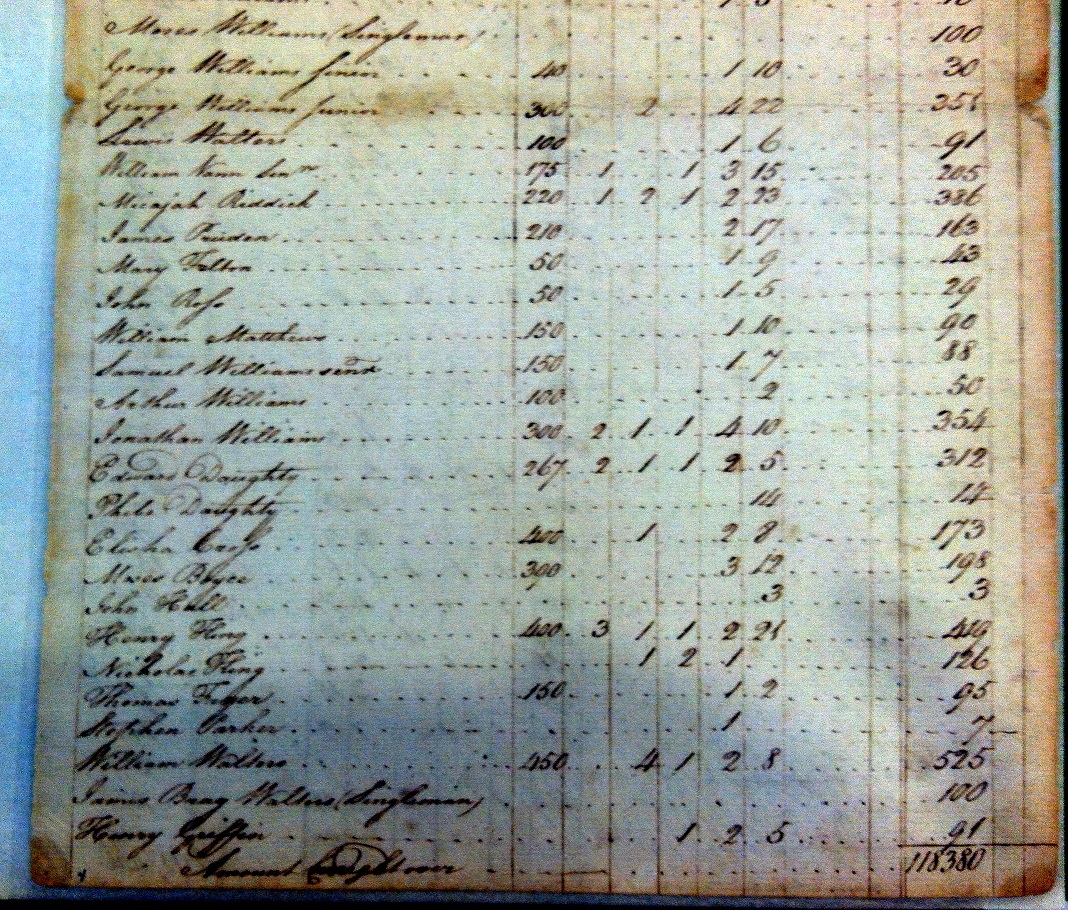 Moses Williams (Singleman) 100
George Williams Junior 40 1 10 30
George Williams Junior 300 2 4 22 351
Lewis Walters 100 1 6 91
William Vann Senr 175 1 1 3 15 205
Micajah Riddick 220 1 2 1 2 23 386
James Pruden 210 2 17 163
Mary Felton 50 1 9 43
John Ross 50 1 5 29
William Matthews 150 1 10 90
Samuel Williams senr 150 1 7 88
Arthur Williams 100 2 50
Jonathan Williams 300 2 1 1 4 10 354
Edward Daughty 267 2 1 1 2 5 312
Daughty 14 14
Elisha Cross 400 1 2 8 173
Moses Boyce 390 3 12 198
John Hall 3 3
Henry King 400 3 1 1 2 21 419
Nicholas King 1 2 1 126
Thomas 150 1 2 95
Stephen Parker 1 7
William Walters 450 4 1 2 8 525
James Bray Walters (Singleman) 100
Henry Griffin 1 2 5 91
Amount over 118380